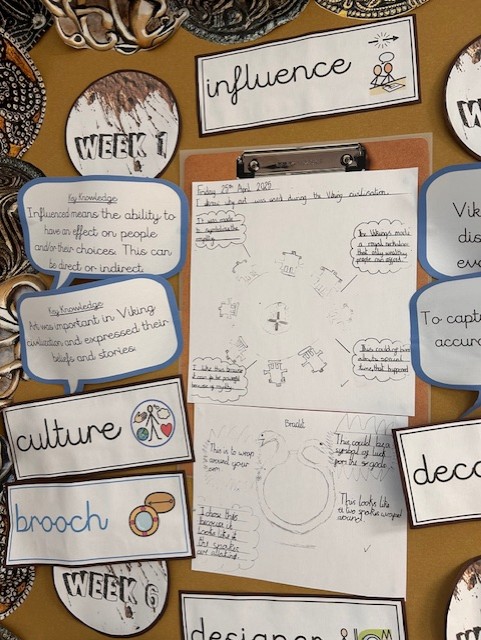 influence
WEEK 1
Key Knowledge:
Influenced means the ability to
have an effect on people
and/or their choices. This can
be direct or indirect.
Key Knowledge:
Art was important in Viking
civilisation and expressed their
beliefs and stories.
culture
brooch
WEEK 6
Friday 25th April 2025
I know why art was used during the Viking civilisation.
It was made
to symbolise the
royalty
The Vikings made
a royal necklace
that only wealthy
people can afford.
I like this because
This could of been
about a special
time that happened
Bracelet
This is to wrap
around your
arm
This could be a
symbol of luck
from the gods
I chose this
because it
looks like
the snakes
are attacking
This looks like
a two snakes wrapped
around
W
Vik
dis
eve
To capt
accura
deco
designer